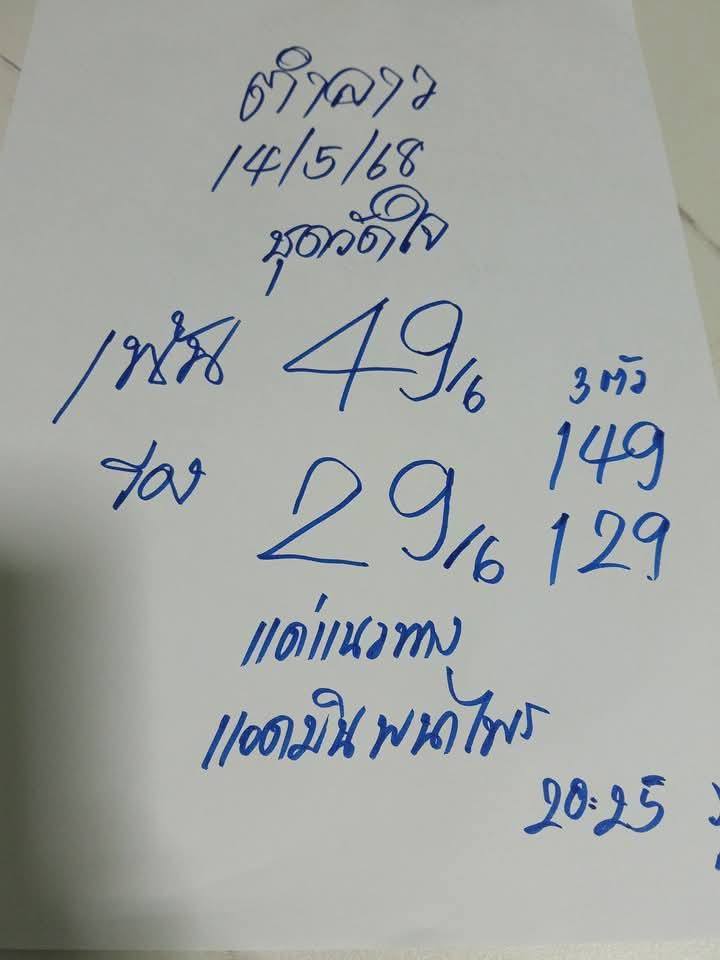 ตำลาว
14/5/68
ชุดวัดใจ
เน้น 49/6
3 ตัว
149
รอง 29/6
129
แค่แนวทาง
แอดมิน พนาไพร
20:25